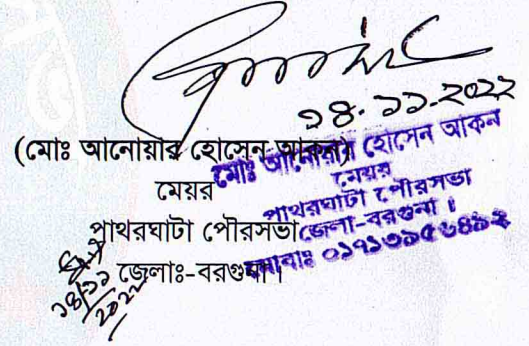 ১৪.১১.২০২২
(মোঃ আনোয়ার হোসেন আকন)
মেয়র
পাথরঘাটা পৌরসভা
জেলাঃ-বরগুনা।
মোঃ আনোয়ার হোসেন আকন
মেয়র
পাথরঘাটা পৌরসভা
জেলা-বরগুনা।
১৪/১১/২০২২